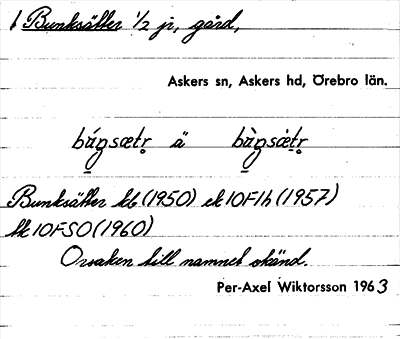 Bunksätter 1/2 jr, gård,
Askers sn, Askers hd, Örebro län.
bŋ́gsætr̥ ä bŋ̀gsætr̥
Bunksätter kb (1950) ek 10F1h (1957)
tk 10F SO (1960)
Orsaken till namnet okänd.
Per-Axel Wiktorsson 1963